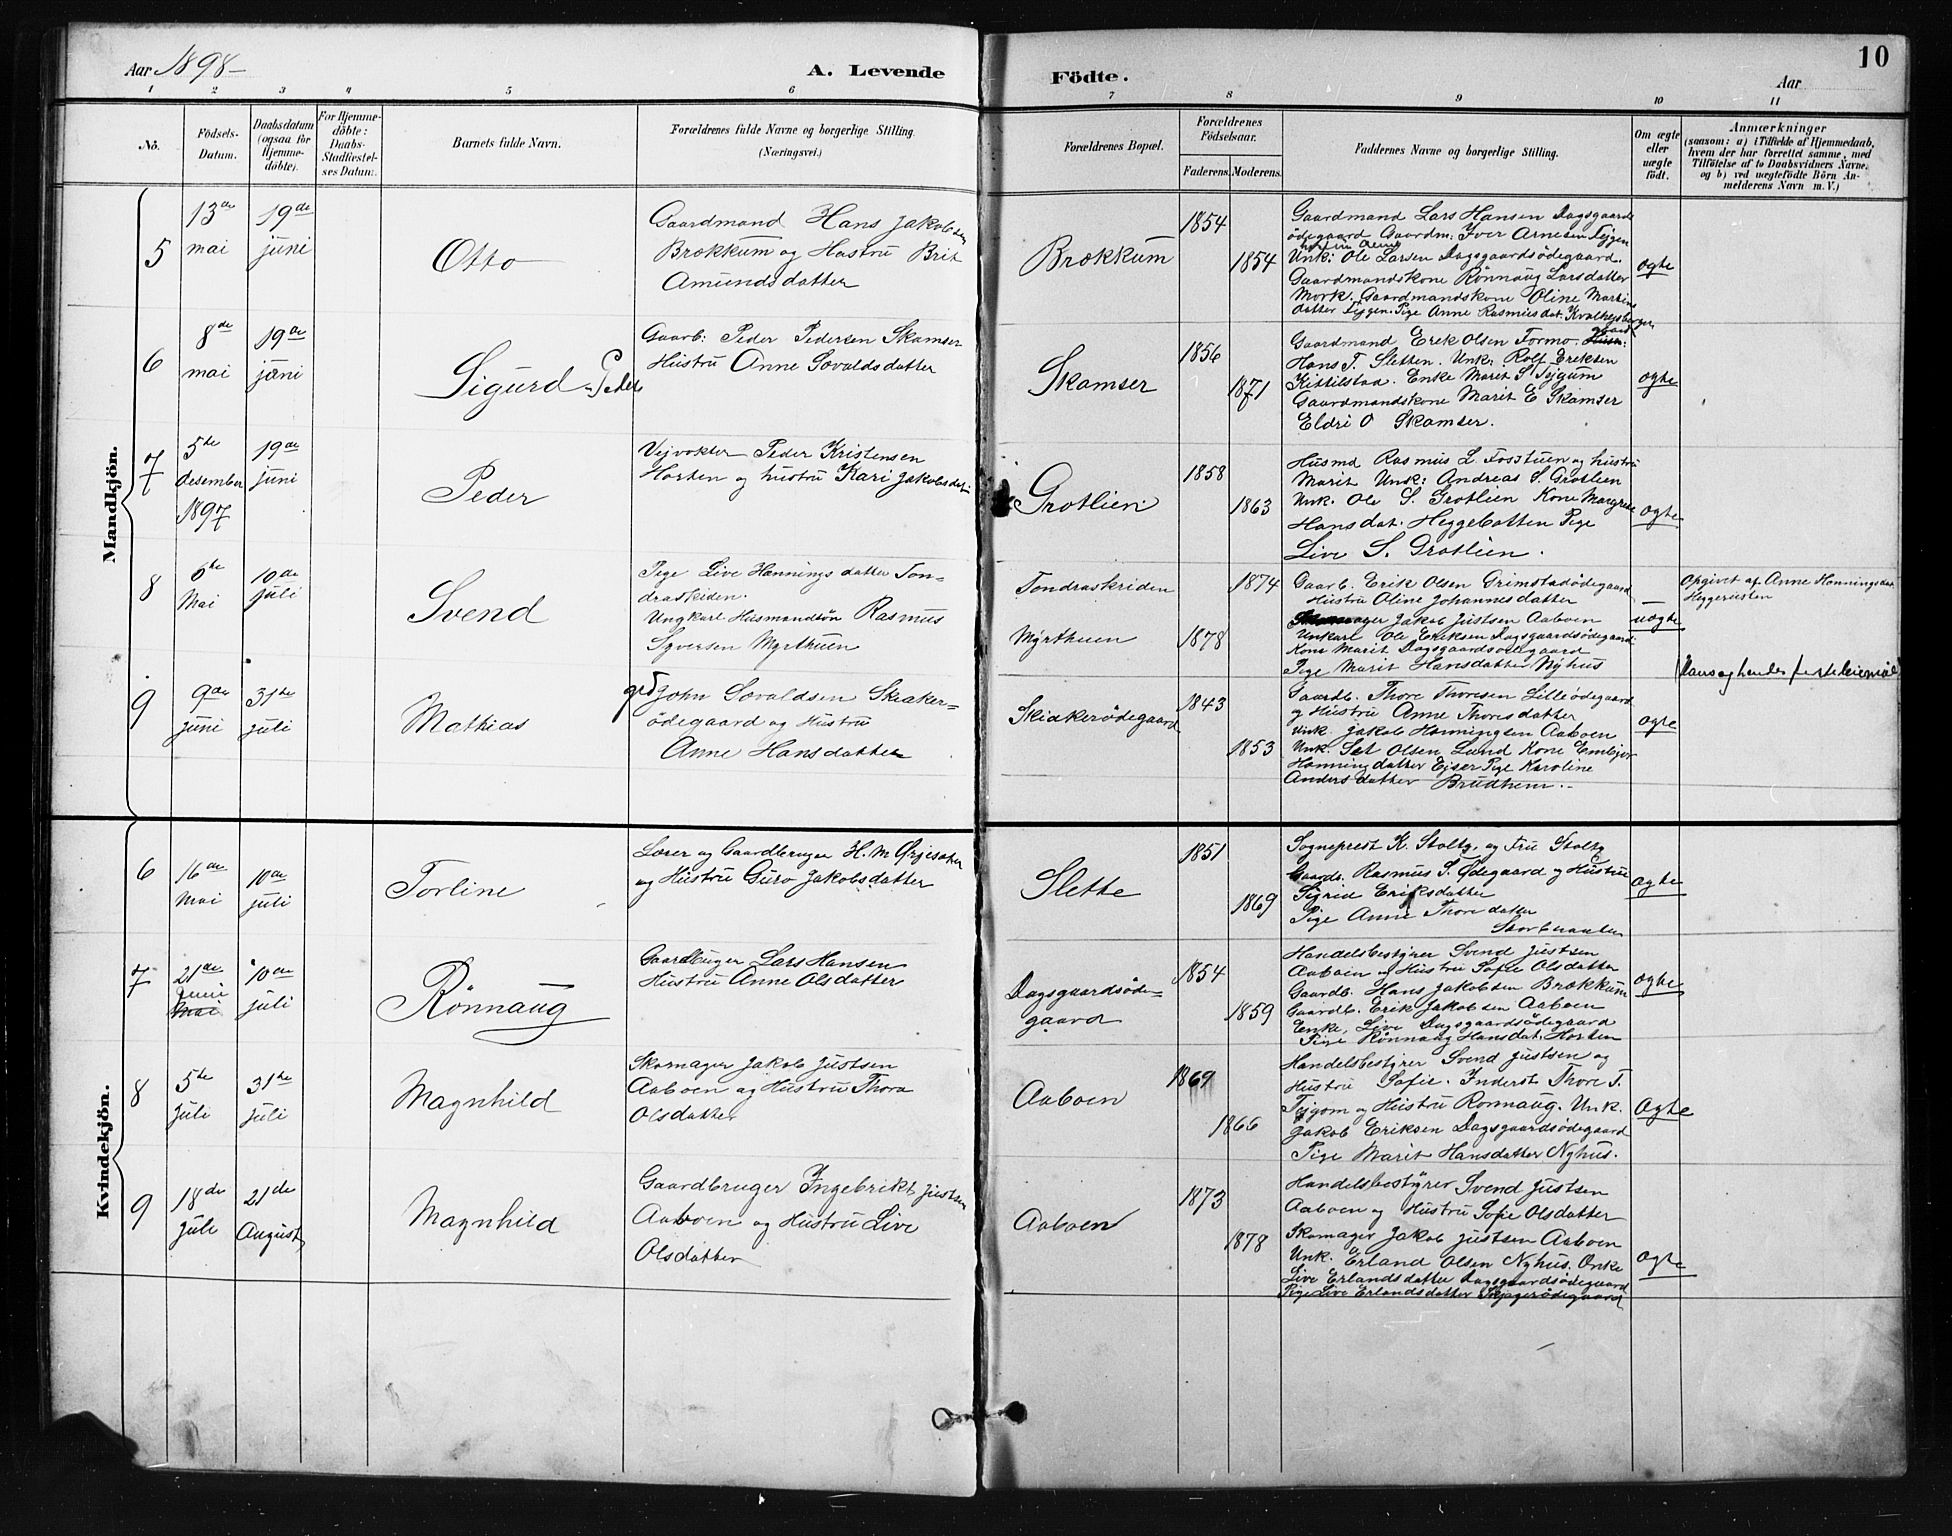 Aar 1898-
A. Levende
Födte.
Aar
10
1 2 3 4 5 6 7 8 9 10 11
No.
Födsels-
Datum.
Daabsdatum
(ogsaa for
Hjemme-
döbte).
For Hjemme-
döbte:
Daabs-
Stadfæstel-
ses Datum.
Barnets fulde Navn.
Forældrenes fulde Navne og borgerlige Stilling.
(Næringsvei.)
Forældrenes Bopæl.
Forældrenes
Födselsaar.
Faderens.
Moderens.
Faddernes Navne og borgerlige Stilling.
Om ægte
eller
uægte
født.
Anmærkninger
(saasom: a) i Tilfælde af Hjemmedaab,
hvem der har forrettet samme, med
Tilføielse af to Daabsvidners Navne,
og b) ved uægtefödte Börn An-
melderens Navn m. V.)
Mandkjön.
5
13de
mai
19de
juni
Otto
Gaardmand Hans Jakobsen
Brækkum og Hustru Brit
Amundsdatter
Brækkum
1854
1854
Gaardmand Lars Hansen Dagsgaards
ödegaard Gaardm: Iver Arnesen Tejgen
Unk: Ole Larsen Dagsgaardsödegaard.
Gaardmandskone Rönnaug Larsdatter
Mork. Gaardmandskone Oline Martins
datter Tejgen. Pige Anne Rasmusdat.
ægte
6
8de
mai
19de
juni
Sigurd Peder
Gaarb: Peder Pedersen Skamser
Hustru Anne Sovaldsdatter
Skamser
1856
1871
Gaardmand Erik Olsen Formo.
Hans T. Sletten. Unk: Rolf Eriksen
Kittilstad. Enke Marit S Tejgum
Gaardmandskone Marit E Skamser
Eldri O Skamser.
ægte
7
5te
desember
1897
19de
juni
Peder
Vejvokter Peder Kristensen
Horten og hustru Kari Jakobsdat
Grotlien
1858
1863
Husmd Rasmus L. Fosstuen og hustru
Marit Unk: Andreas S. Grotlien
Unk. Ole S. Grotlien Kone Margrete
Hansdat. Heggebotten Pige
Live S. Grotlien.
ægte
8
6te
Mai
10de
juli
Svend
Pige Live Hænnings datter Ton-
draskriden.
Ungkarl Husmandsön Rasmus
Syversen Myrthuen
Tondraskriden
Myrthuen
1874
1878
Gaarb. Erik Olsen Grimstadödegaard
Hustru Oline Johannesdatter
Jakob Justsen Aaboen
Unkarl Ole Eriksen Dagsgaardsödegaard.
Kone Marit Dagsgaardsödegaard
Pige Marit Hansdatter Nyhus
uægte
Opgivet af Anne Hænningsdat
Heggerusten
9
9de
juni
31te
juli
Mathias
John Sovaldsen Skiaker=
ödegaard og Hustru
Anne Hansdatter
Skiakerödegaard
1843
1853
Gaardb. Thore Thoresen Lilleödegaard
og Hustru Anne Thoresdatter
Unk. Jakob Hænningsen Aaboen
Unk. Set Olsen Lund Kone Embjør
Hænningsdatter Ejser Pige Karoline
Andersdatter Brudheim..
ægte
Kvindekjön.
6
16de
Mai
10de
juli
Torline
Lærer og Gaardbruger H. M Ørjesæter
og Hustru Guro Jakobsdatter
Slette
1851
1869
Sogneprest K. Stoltz, og Fru Stoltz
Gaardb. Rasmus T. Ödegaard og Hustru
Sigrid Eriksdatter
Pige Anne Thoredatter
ægte
7
21de
Juni
Mai
10de
juli
Rønnaug
Gaardbruger Lars Hansen
Hustru Anne Olsdatter
Dagsgaardsöde=
gaard
1854
1859
Handelsbestyrer Svend Justsen
Aaboen og Hustru Sofie Olsdatter
Gaardb. Hans Jakobsen Brækkum
Gaardb. Erik Jakobsen Aaboen
Enke, Live Dagsgaardsödegaard
Pige Rønnaug Hansdat. Horten
ægte
8
5te
Juli
31te
Juli
Magnhild
Skomager Jakob Justsen
Aaboen og Hustru Thora
Olsdatter
Aaboen
1869
1866
Handelsbestyrer Svend Justsen og
Hustru Sofie. Inderst Thore T.
Tejgom og Hustru Rønnaug. Unk.
Jakob Eriksen Dagsgaardsödegaard
Pige Marit Hansdatter Nyhus.
Ægte
9
18de
Juli
21de
August
Magnhild
Gaardbruger Ingebrikt Justsen
Aaboen og Hustru Live
Olsdatter
Aaboen
1873
1878
Handelsbestyrer Svend Justsen
Aaboen og Hustru Sofie Olsdatter
Skomager Jakob Justsen Aaboen
Unk. Erland Olsen Nyhus. Enke
Live Erlandsdatter Dagsgaardsödegaard
Pige Live Erlandsdatter Skjagerödegaard
ægte